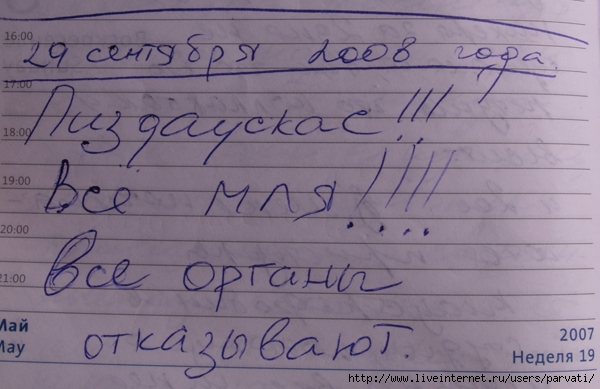 16:00
29 сентября 2008 года.
17:00
Пиздаускас!!!
18:00
Все мля!!!!
19:00
20:00
все органы
21:00
Май
May
отказывают.
2007
Неделя 19
http://www.liveinternet.ru/users/parvati/